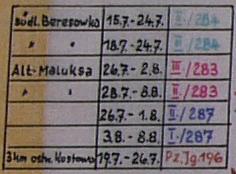 südl. Beresowka 15.7.-24.7. II./284
" " 18.7.-24.7. II./284
Alt-Maluksa 26.7.- 2.8. III./283
28.7.- 8.8. II./283
26.7.- 1.8. II./287
3.8.- 8.8. I./287
3km ostw. Kostowo 19.7.-26.7. Pz.Jg.196